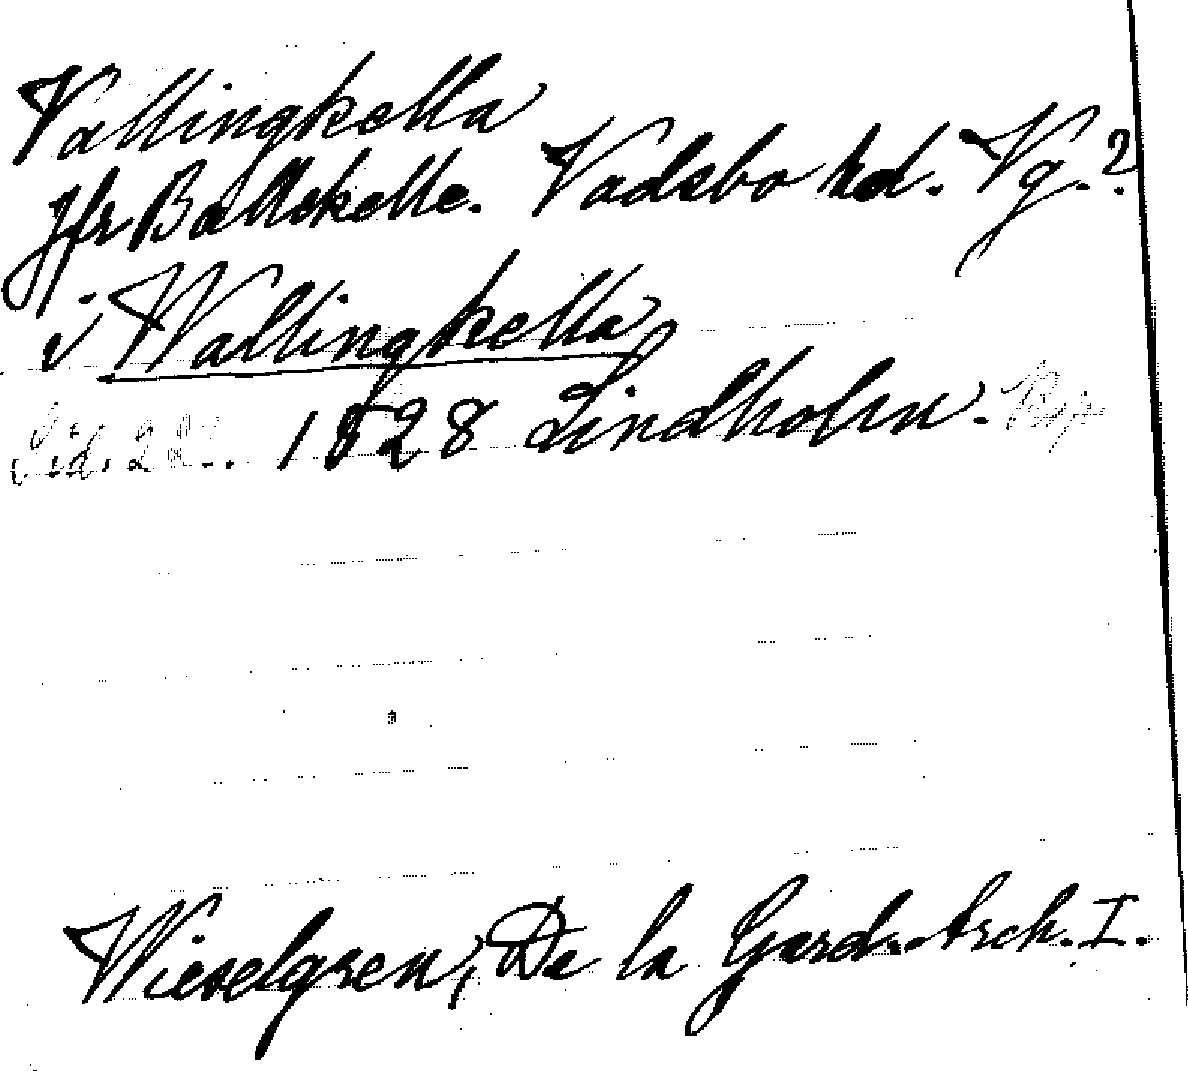 Vallingkella
Jfr Ballekelle. Vadsbo hd. Vg.?
i Wallingkella
Sid. 1528 Lindholm.
Wieselgren, De la Gard. Arch. I.